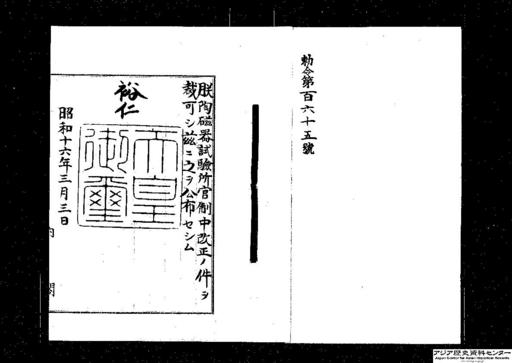 勅令第百六十五號
朕陶磁器試驗所官制中改正ノ件ヲ
裁可シ茲ニ之ヲ公布セシム
裕仁
天皇
御璽
昭和十六年三月三日
内閣
アジア歴史資料センター
Japan Center for Asian Historical Records